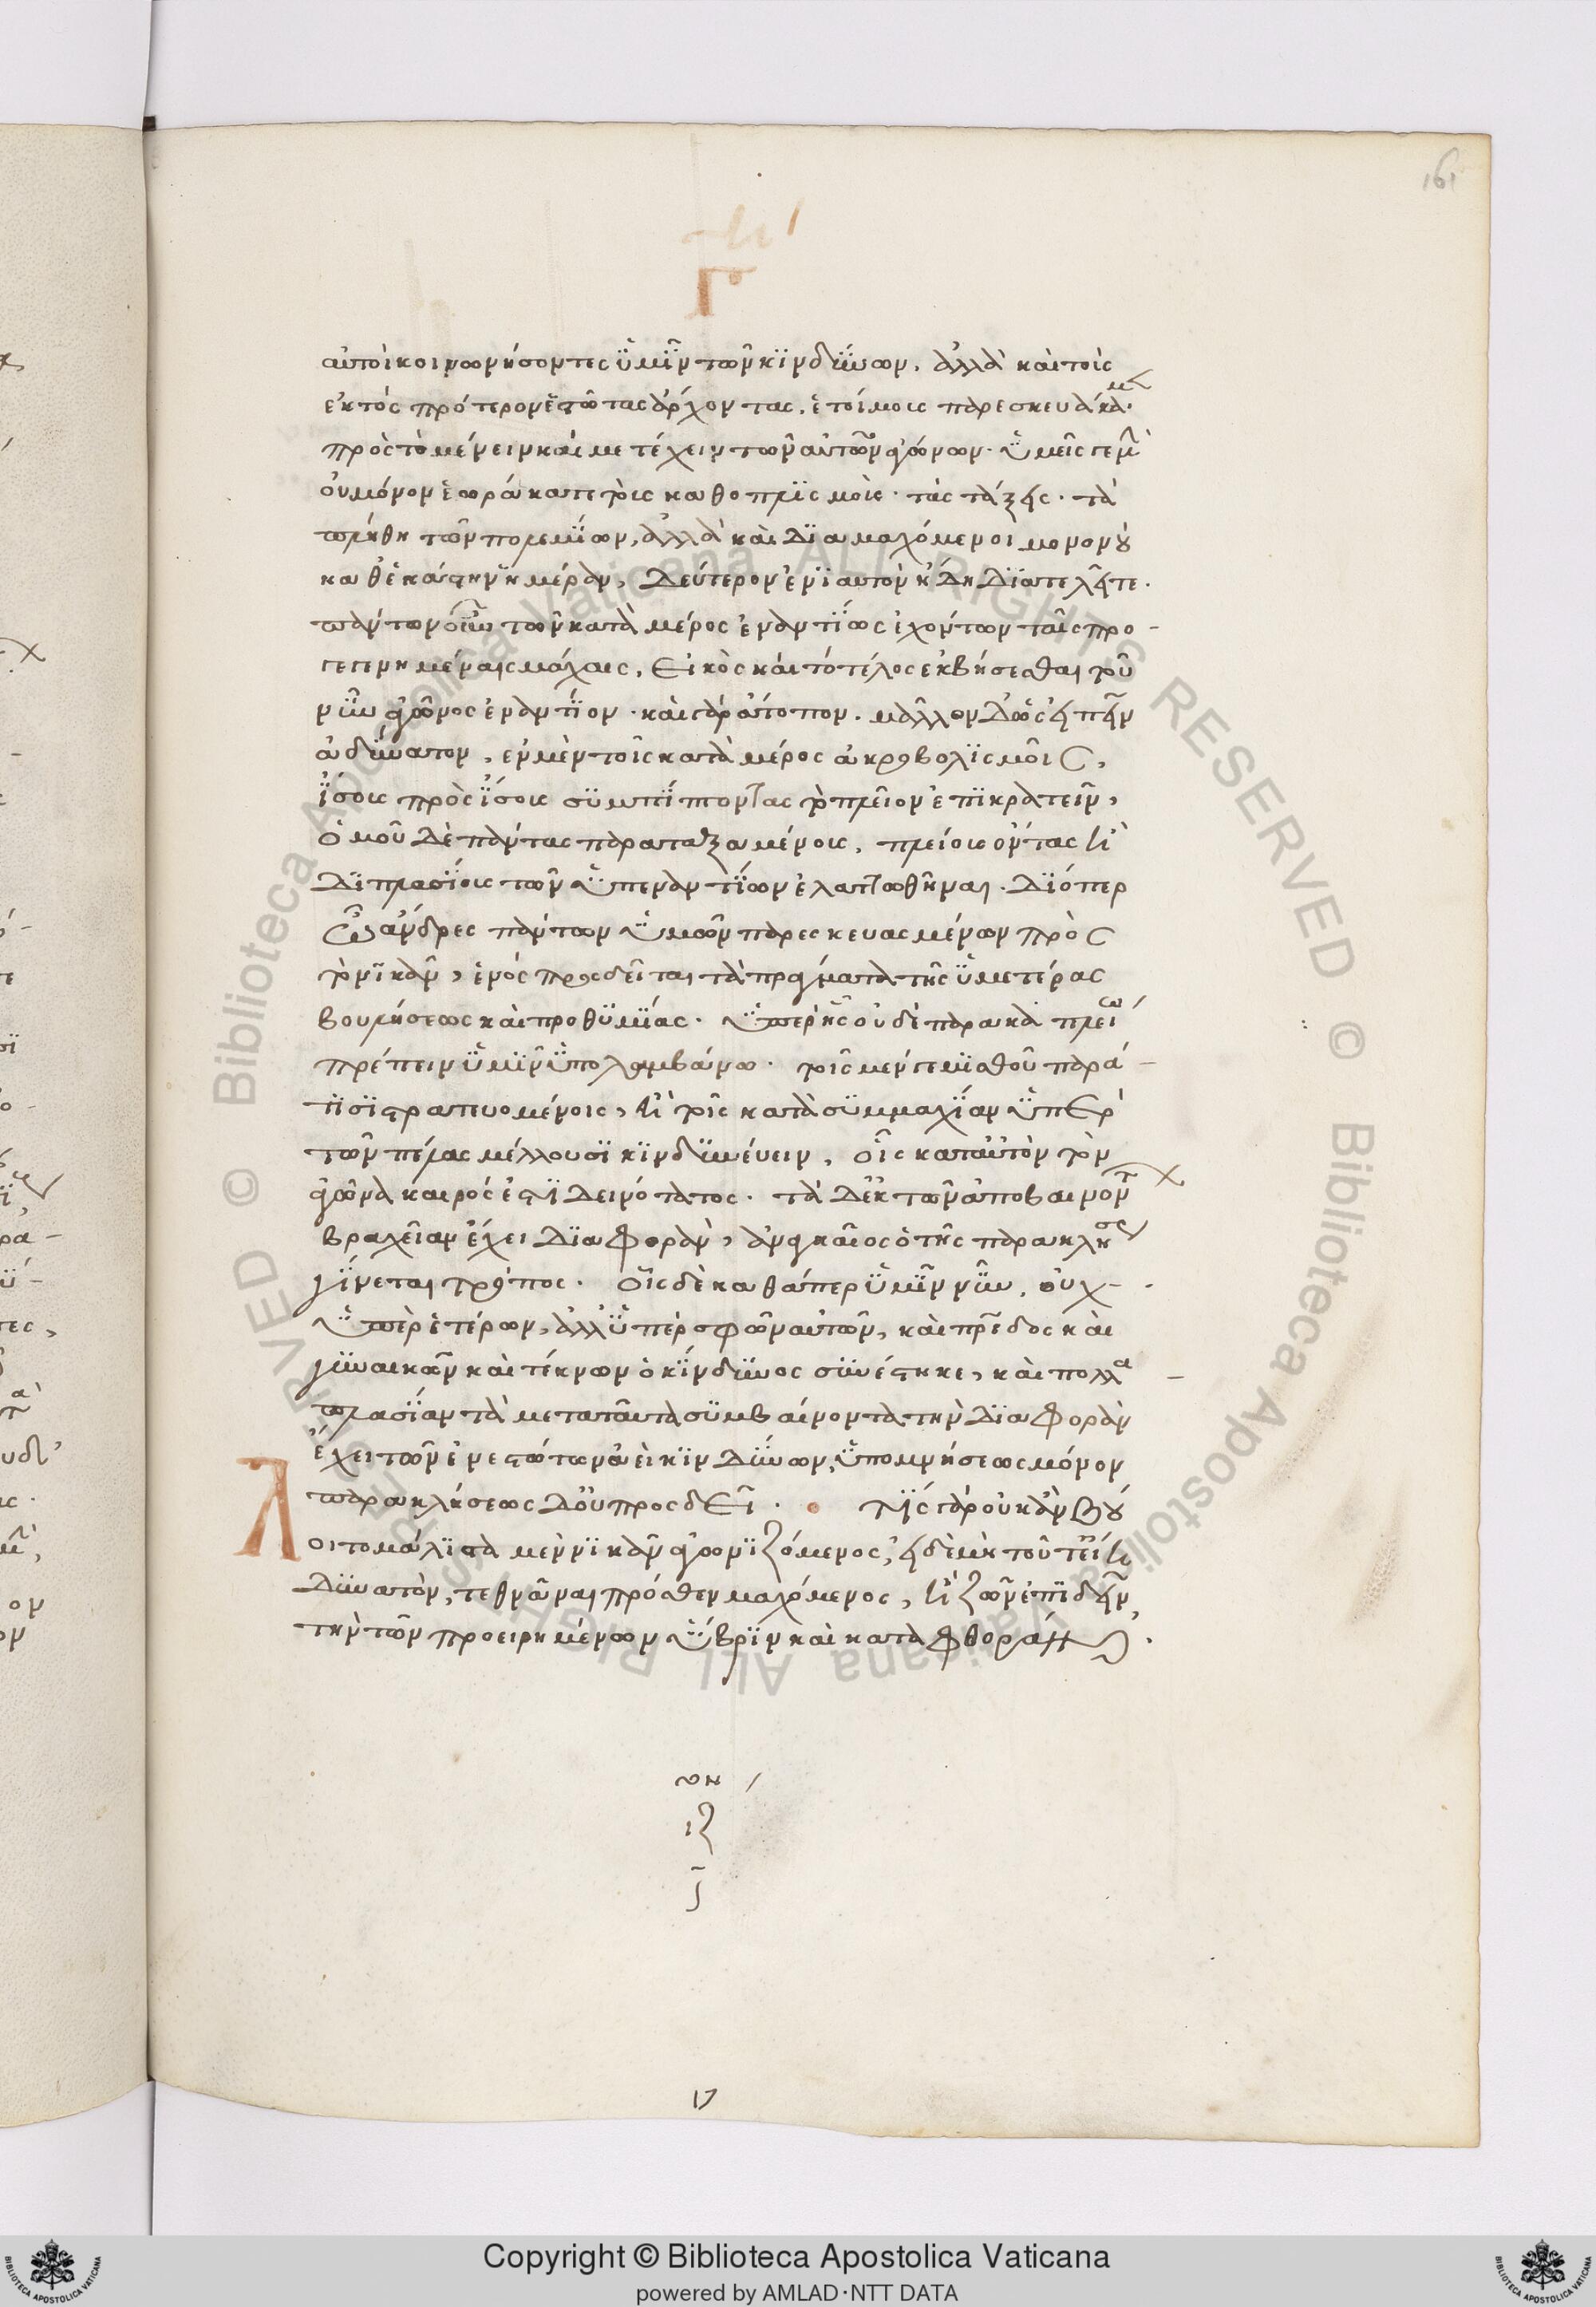 161
Γ
αὐτοὶ κοινωνήσοντες ὑμῖν τῶν κινδύνων. ἀλλὰ καὶ τοὺς
ἐκ τὸς πρότερον ἔτους ἄρχοντας, ἑτοίμους παρεσκευάκαμεν
πρὸς τὸ μένειν καὶ μετέχειν τῶν αὐτῶν ἀγώνων. ὑμεῖς γε μὴν
οὐ μόνον ἑωράκατε τοὺς καθοπλισμοὺς. τὰς τάξεις. τὰ
πλήθη τῶν πολεμίων, ἀλλὰ καὶ διαμαχόμενοι μονονοὺ
καθ' ἑκάστην ἡμέραν, δεύτερον ἐνιαυτὸν ἤδη διατελεῖτε.
πάντων οὖν τῶν κατὰ μέρος ἐναντίως ἐχόντων ταῖς προ-
γεγενημέναις μάχαις, εἰκὸς καὶ τὸ τέλος ἐκβήσεσθαι τοῦ
νῦν ἀγῶνος ἐναντίον. καὶ γὰρ ἄτοπον. μᾶλλον δ' ὡς εἰπεῖν
ἀδύνατον, ἐν μὲν τοῖς κατὰ μέρος ἀκροβολισμοῖς,
ἴσους πρὸς ἴσους συμπίπτοντας τὸ πλεῖον ἐπικρατεῖν,
ὁμοῦ δὲ πάντας παραταξαμένους, πλείους ὄντας ἢ
διπλασίους τῶν ὑπεναντίων ἐλαττωθῆναι. διόπερ
ὦ ἄνδρες πάντων ὑμῶν παρεσκευασμένων πρὸς
τὸ νικᾶν, ἑνὸς προσδεῖται τὰ πράγματα τῆς ὑμετέρας
βουλήσεως καὶ προθυμίας. ὑπὲρ ἧς οὐδὲ παρακαλεῖν πλείω
πρέπειν ὑμῖν ὑπολαμβάνω. τοῖς μέν γε μισθοῦ παρά
τισι στρατευομένοις, ἢ τοῖς κατὰ συμμαχίαν ὑπὲρ
τῶν πέλας μέλλουσι κινδυνεύειν, οἷς κατ' αὐτὸν τὸν
ἀγῶνα καιρός ἐστι δεινότατος. τὰ δ' ἐκ τῶν ἀποβαινόντων
βραχεῖαν ἔχει διαφορὰν, ἀναγκαῖος ὁ τῆς παρακλήσεως
γίνεται τρόπος. οἷς δὲ καθάπερ ὑμῖν νῦν, οὐχ
ὑπὲρ ἑτέρων, ἀλλ' ὑπὲρ σφῶν αὐτῶν, καὶ πατρίδος καὶ
γυναικῶν καὶ τέκνων ὁ κίνδυνος συνέστηκε, καὶ πολλα-
πλασίαν τὰ μετὰ ταῦτα συμβαίνοντα τὴν διαφορὰν
ἔχει τῶν ἐνεστώτων ἀεὶ κινδύνων, ὑπομνήσεως μόνον
παρακλήσεως δ' οὐ προσδεῖ. τίς γὰρ οὐκ ἂν βού
λοιτο μάλιστα μὲν νικᾶν ἀγωνιζόμενος, εἰ δὲ μὴ τοῦτ' εἴη
δυνατὸν, τεθνᾶναι πρόσθεν μαχόμενος, ἢ ζῶν ἐπιδεῖν
τὴν τῶν προειρημένων ὕβριν καὶ καταφθοράν.
ιζ
17